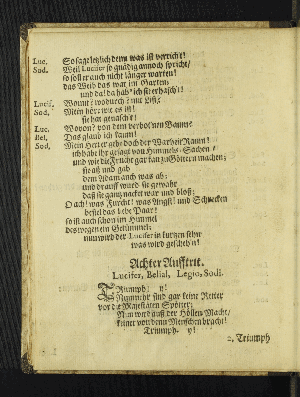 Luc. So sage letzlich denn was ist verricht!
Sod. Weil Lucifer so gnädig annoch spricht/
so soll er auch nicht länger warten!
das Weib das war im Garten;
und da! da hab' ich sie erhascht!
Lucif. Womit? wodurch? mit List?
Sod. Mein Herr es ist!
sie hat genascht!
Luc. Wovon? von dem verbotnen Baum?
Bel. Das glaub ich kaum!
Sod. Mein Herr er gebe doch der Warheit Raum!
ich habe ihr gesagt von Himmels-Sachen/
und wie die Frucht gar kan zu Göttern machen;
sie aß und gab
dem Adam auch was ab:
und drauff ward sie gewahr
daß sie gantz nacket war und bloß;
O ach! was Furcht! was Angst! und Schrecken
befiel das liebe Paar!
so ist auch schon im Himmel
deswegen ein Getümmel;
nun wird der Lucifer in kurtzen sehn
was wird geschehn!
Achter Aufftrit.
Lucifer, Belial, Legio, Sodi.
TRiumph! y!
Nunmehr sind gar keine Retter
vor die Majestäten Spötter;
Nun wird auß der Höllen Macht/
keiner von den Menschen bracht!
Triumph. y!
2. Triumph